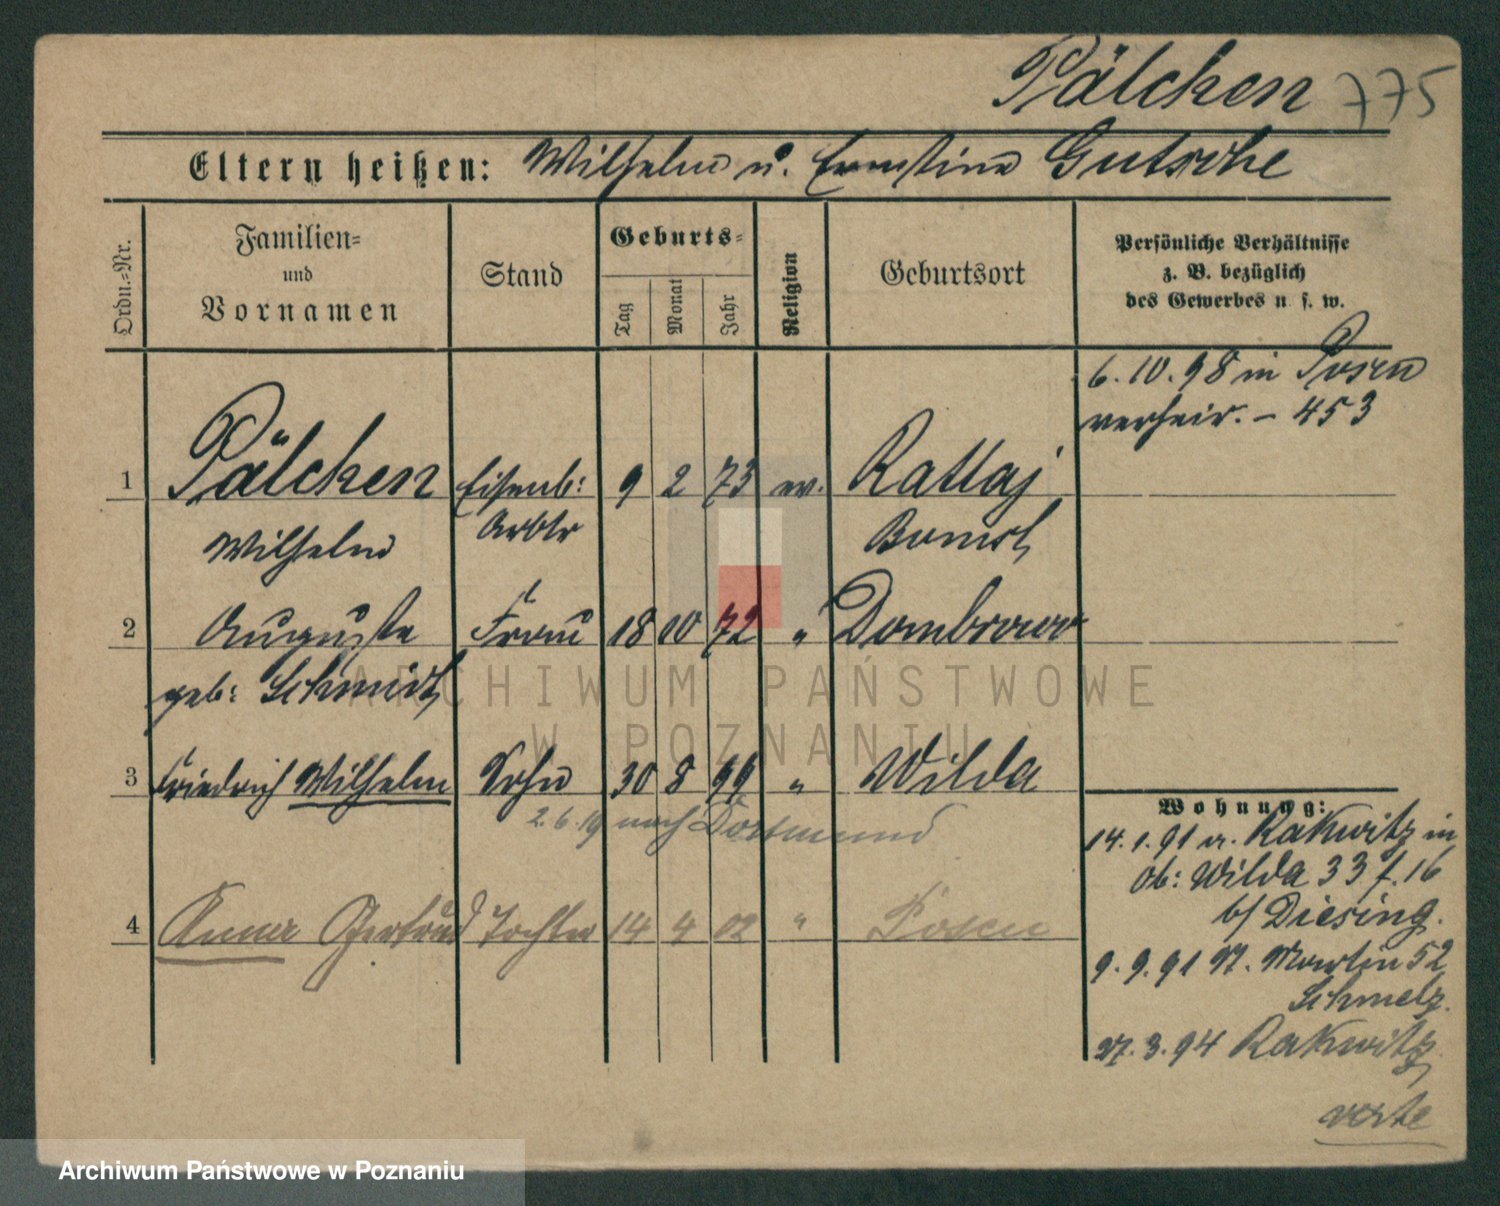 Pälchen 775
Eltern heißen: Wilhelm u. Ernstine Gutsche
Ordn.-Nr.
Familien-
und
Vornamen
Stand
Geburts-
Tag
Monat
Jahr
Religion
Geburtsort
Persönliche Verhältnisse
z. B. bezüglich
des Gewerbes u. s. w.
6. 10. 98 in Posen
verheir. - 453
1 Pälchen Eisenb: 9 2 73 ev. Rattaj
Wilhelm Arbtr Bomst
2 Auguste Frau 18 10 72 " Dombrowo
geb: Schmidt
3 Friedrich Wilhelm Sohn 30 8 99 " Wilda
2. 6. 19 nach Dortmund
4 Anna Gertrud Tochter 14 4 02 " Posen
Wohnung:
14. 1. 91 a. Rakwitz in
Ob: Wilda 33 f. 16
b/ Diesing.
9. 9. 91 St. Martin 52
Schmelz.
27. 3. 94 Rakwitz
verte
ARCHIWUM PAŃSTWOWE
W POZNANIU
Archiwum Państwowe w Poznaniu